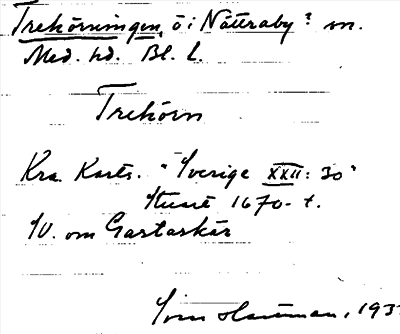 Trekörningen, ö i Nättraby? sn.
Med. hd. Bl. l.
Trekörn
Kra. Karts. "Sverige XXII: 30"
1670-t.
SV. om Gastaskär
193